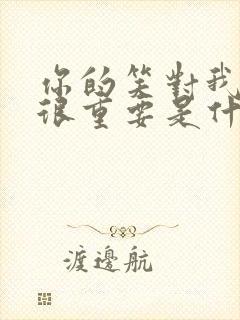 你的笑對我
很重要是什
渡邊航